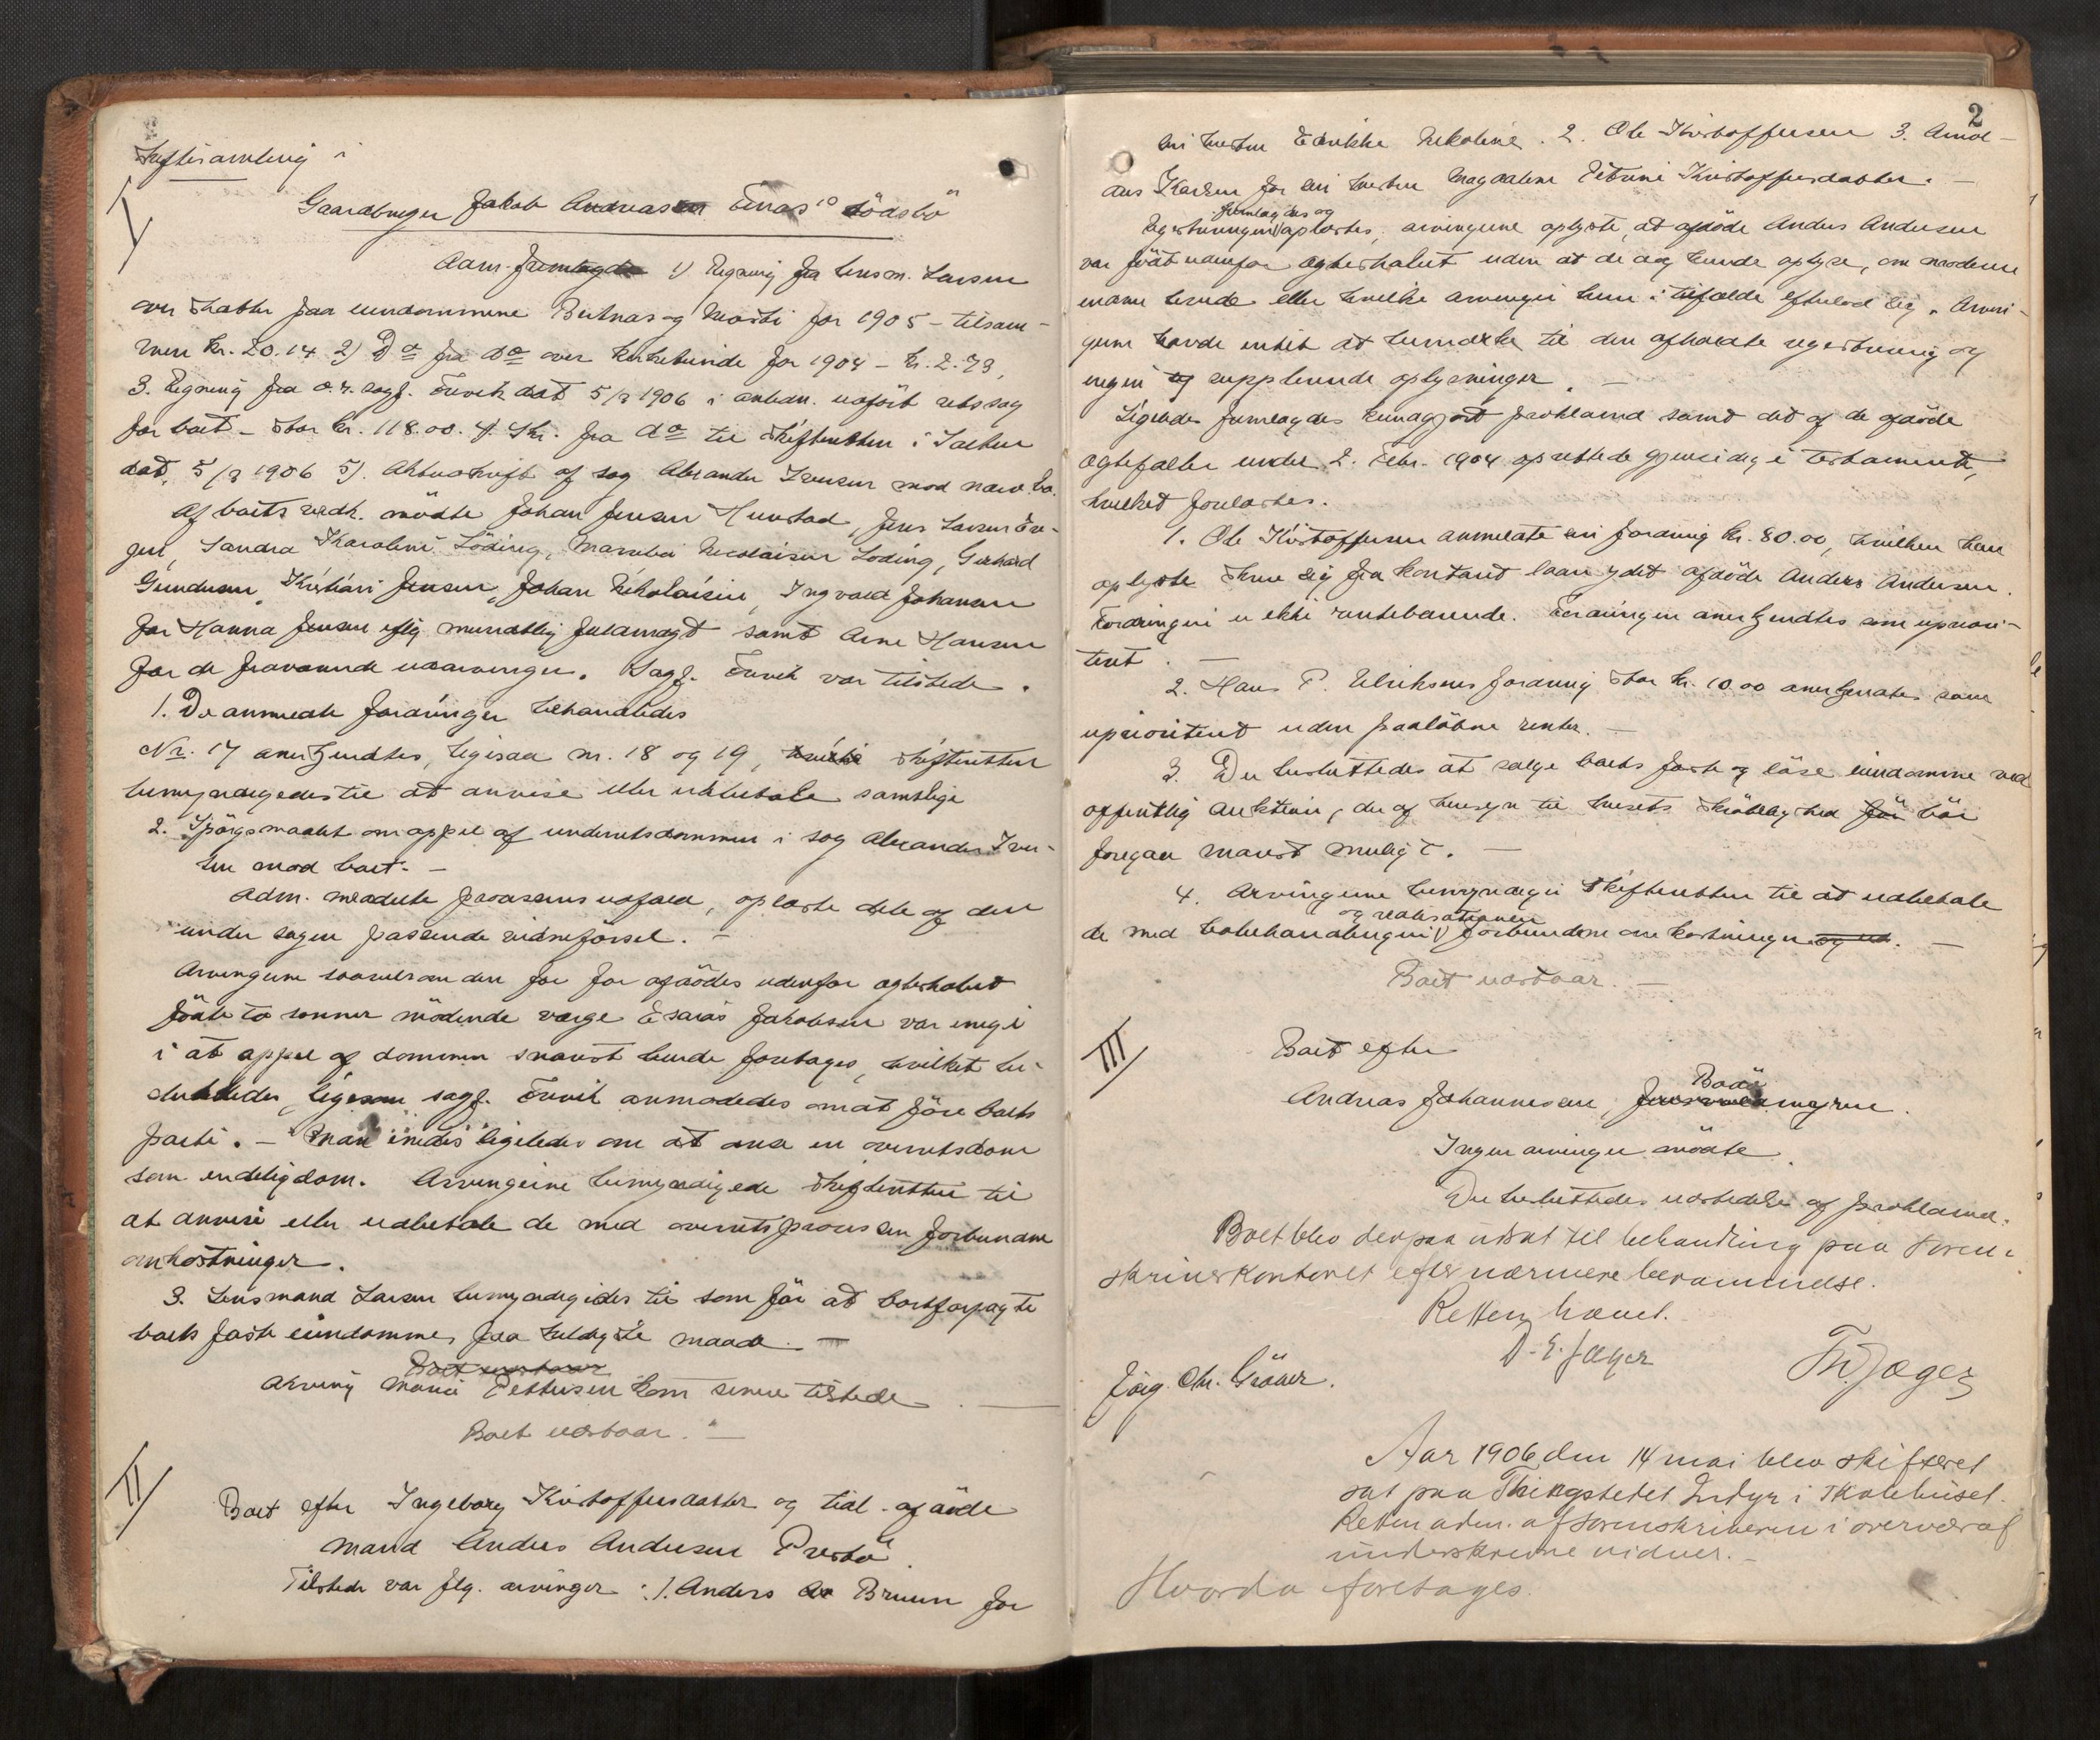 Skiftesamling i
I/
Gaardbruger Jakob Andreas Einas' dödsbo
Adm. fremlagde 1) Regning fra lensm. Larsen
over skatter paa eiendommene og for 1905 - tilsam-
men kr. 20.14 2) Do fra do over for 1904 - kr. 2.73,
3. Regning fra o.r. sagf. dat 5/3 1906 i anledn. udfört retssag
for boet - stor kr. 118.00. 4. Skr. fra do til skifteretten i Salten
dat. 5/3 1906 5). Aktuskrift af sag Alexander Iversen mod nærv. bo.
Af boets vedk. mödte Johan Jensen Hunstad, Jens Larsen
Sandra Karoline Löding, Nicolaisen Löding, Gerhard
Gundersen, Kristian Jensen, Johan Nikolaisen, Ingvald Johansen
for Hanna Jensen eflg. mundtlig fuldmagt samt Arne Hansen
for de fraværende udarvinger. Sagf. var tilstede.
1. De anmeldte fordringer behandledes
Nr. 17 anerkjendtes, ligesaa nr. 18 og 19, skifteretten
bemyndigedes til at anvise eller udbetale samtlige
2. Spörgsmaalet om appel af underretsdommen i sag Alexander Iver-
sen mod boet. -
Adm. meddelte processens udfald, oplæste dele af den
under sagen passerede vidneförsel. -
Arvingerne saavelsom den for for afdödes udenfor ægteskabet
födte to sönner mödende værge Esaias Jakobsen var enige
i at appel af dommen snarest burde foretages, hvilket be-
sluttedes, ligesom sagf. anmodedes om at före boets
parti. - Man enedes ligeledes om at anse en overretsdom
som endelig dom. Arvingerne bemyndigede skifteretten til
at anvise eller udbetale de med overretsprocessen forbundne
omkostninger.
3. Lensmand Larsen bemyndigedes til som för at bortforpagte
boets faste eiendomme paa heldigste maade. -
Boet udstaar
Arving Pettersen kom senere tilstede. -
Boet udstaar. -
II/
Boet efter Ingeborg Kristoffersdatter og tidl. afdöde
mand Anders Andersen
Tilstede var flg. arvinger: 1. Anders Bruun for
2
sin hustru Nikoline. 2. Ole Kristoffersen 3. Amd-
as Karlsen for sin hustru Magdalene Petrine Kristoffersdatter. -
fremlagdes og
Registreringen oplæstes, arvingerne oplyste, at afdöde Anders Andersen
var födt udenfor ægteskabet uden at de dog kunde oplyse, om moderen
endnu levede eller hvilke arvinger hun i tilfælde efterlod sig. Arvin-
gerne havde intet at bemærke til den afholdte registrering og
ingen supplerende oplysninger. -
Ligeledes fremlagdes kundgjort proklama samt det af de afdöde
ægtefæller under 2. Febr. 1904 oprettede gjensidige testamente,
hvilket forelæstes.
1. Ole Kristoffersen anmeldte en fordring kr. 80.00, hvilken han
oplyste skrev sig fra kontant laan ydet afdöde Anders Andersen.
Fordringen er ikke rentebærende. Fordringen anerkjendtes som uprior-
teret. -
2. Hans P. Ulriksens fordring stor kr. 10.00 anerkjendtes som
uprioriteret uden paalöbne renter. -
3. Det besluttedes at sælge boets faste og löse eiendomme ved
offentlig auktion, der af hensyn til husets skröbelighed bör
foregaa snarest muligt. -
4. Arvingerne bemyndiger skifteretten til at udbetale
og realisationen
de med bobehandlingen forbundne omkostninger. -
Boet udstaar. -
III/
Boet efter
Andreas Johannesen,
Ingen arvinger mödte.
Det besluttedes udstedelse af proklama.
Boet blev derpaa udsat til behandling paa soren-
skriverkontoret efter nærmere berammelse.
Retten hævet.
D. E. Jæger
Th. Jæger
Jörg. Chr. Gröner.
Aar 1906 den 14 mai blev skifteret
sat paa Thingstedet Indyr i skolehuset.
Retten adm. af sorenskriveren i overvær af
underskrevne vidner. -
Hvorda foretages.